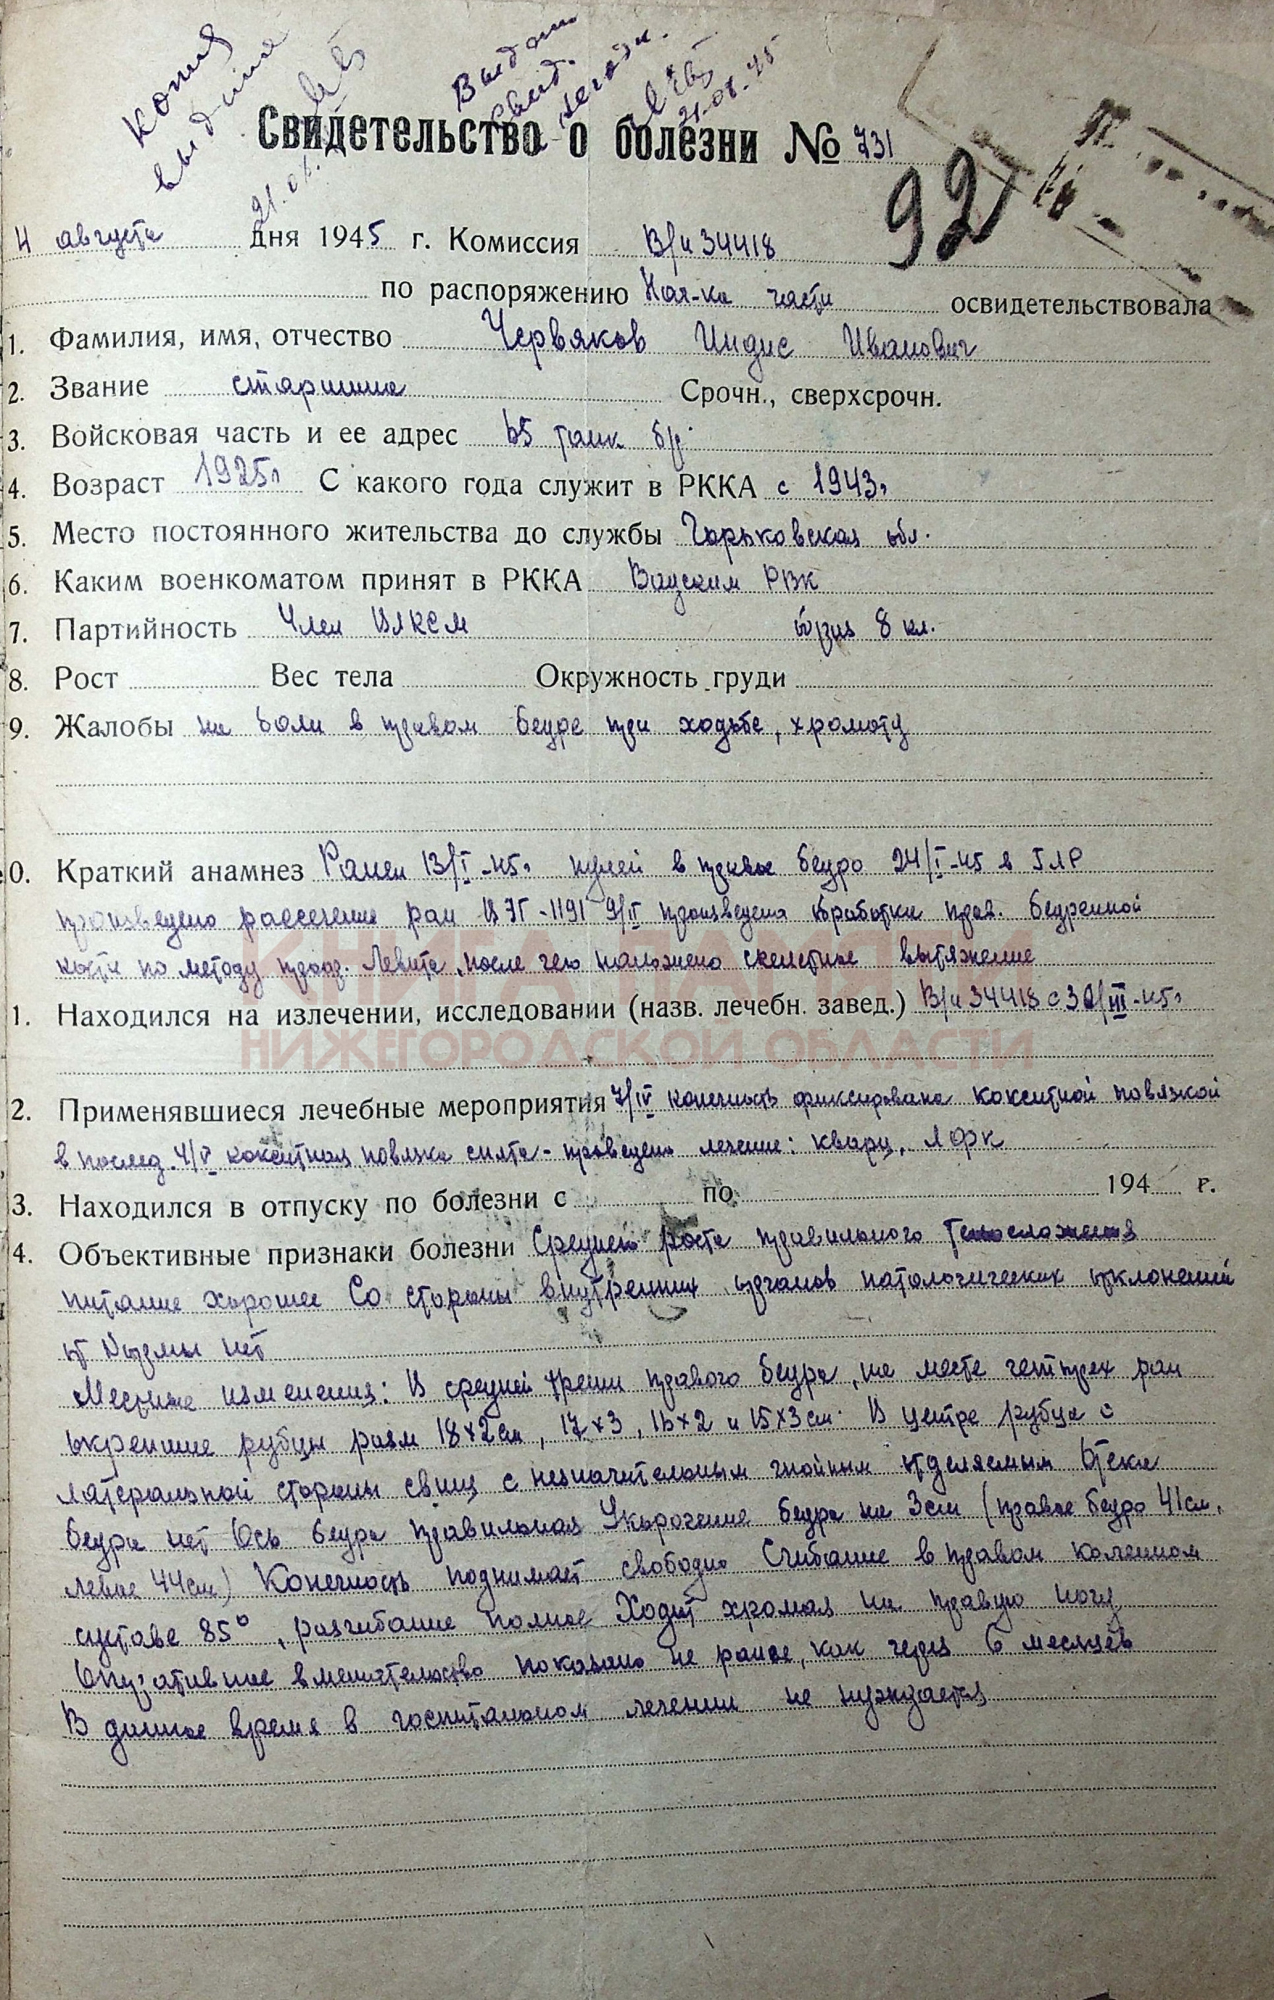 Копия выдана
21.08.45
Выдан
свид.
21.08.45
Свидетельство о болезни № 731
92
4 августа дня 1945 г. Комиссия В/ч 34418
по распоряжению Нач-ка части освидетельствовала
1. Фамилия, имя, отчество Червяков Индис Иванович
2. Звание старшина Срочн., сверхсрочн.
3. Войсковая часть и ее адрес 65 танк бр.
4. Возраст 1925г С какого года служит в РККА с 1943г
5. Место постоянного жительства до службы Горьковская обл.
6. Каким военкоматом принят в РККА Вачским РВК
7. Партийность Член ВЛКСМ образ 8 кл.
8. Рост Вес тела Окружность груди
9. Жалобы на боли в правом бедре при ходьбе, хромоту
0. Краткий анамнез Ранен 13/I-45г пулей в правое бедро 24/I-45 в ГЛР
произведено рассечение ран В ЭГ-1191 9/II произведена обработка прав. бедренной
кости по методу проф. Левита, после чего наложено скелетное вытяжение
КНИГА ПАМЯТИ
1. Находился на излечении, исследовании (назв. лечебн. завед.) В/ч 34418 с 30/III-45г
НИЖЕГОРОДСКОЙ ОБЛАСТИ
2. Применявшиеся лечебные мероприятия 7/IV конечность фиксирована кокситной повязкой
в послед. 4/V кокситная повязка снята - проведено лечение: кварц, ЛФК
3. Находился в отпуску по болезни с по 194 г.
4. Объективные признаки болезни Среднего роста правильного телосложения
питание хорошее Со стороны внутренних органов патологических отклонений
от нормы нет
Местные изменения: В средней трети правого бедра, на месте четырех ран
окрепшие рубцы разм 18×2см, 17×3, 16×2 и 15×3см. В центре рубца с
латеральной стороны свищ с незначительным гнойным отделяемым Отека
бедра нет Ось бедра правильная Укорочение бедра на 3см (правое бедро 41см,
левое 44см) Конечность поднимает свободно Сгибание в правом коленном
суставе 85°, разгибание полное Ходит хромая на правую ногу
Оперативное вмешательство показано не ранее, как через 6 месяцев
В данное время в госпитальном лечении не нуждается